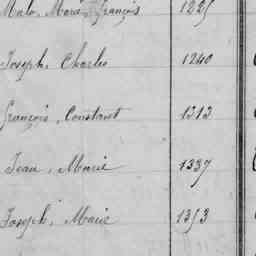 Malo, Marie, François 1225
Joseph, Charles 1240
François, Constant 1313
Jean, Marie 1337
Joseph, Marie 1353